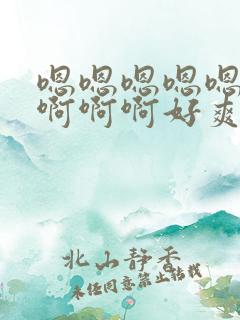 嗯嗯嗯嗯嗯
啊啊啊好爽
北山静香
未经同意禁止转载